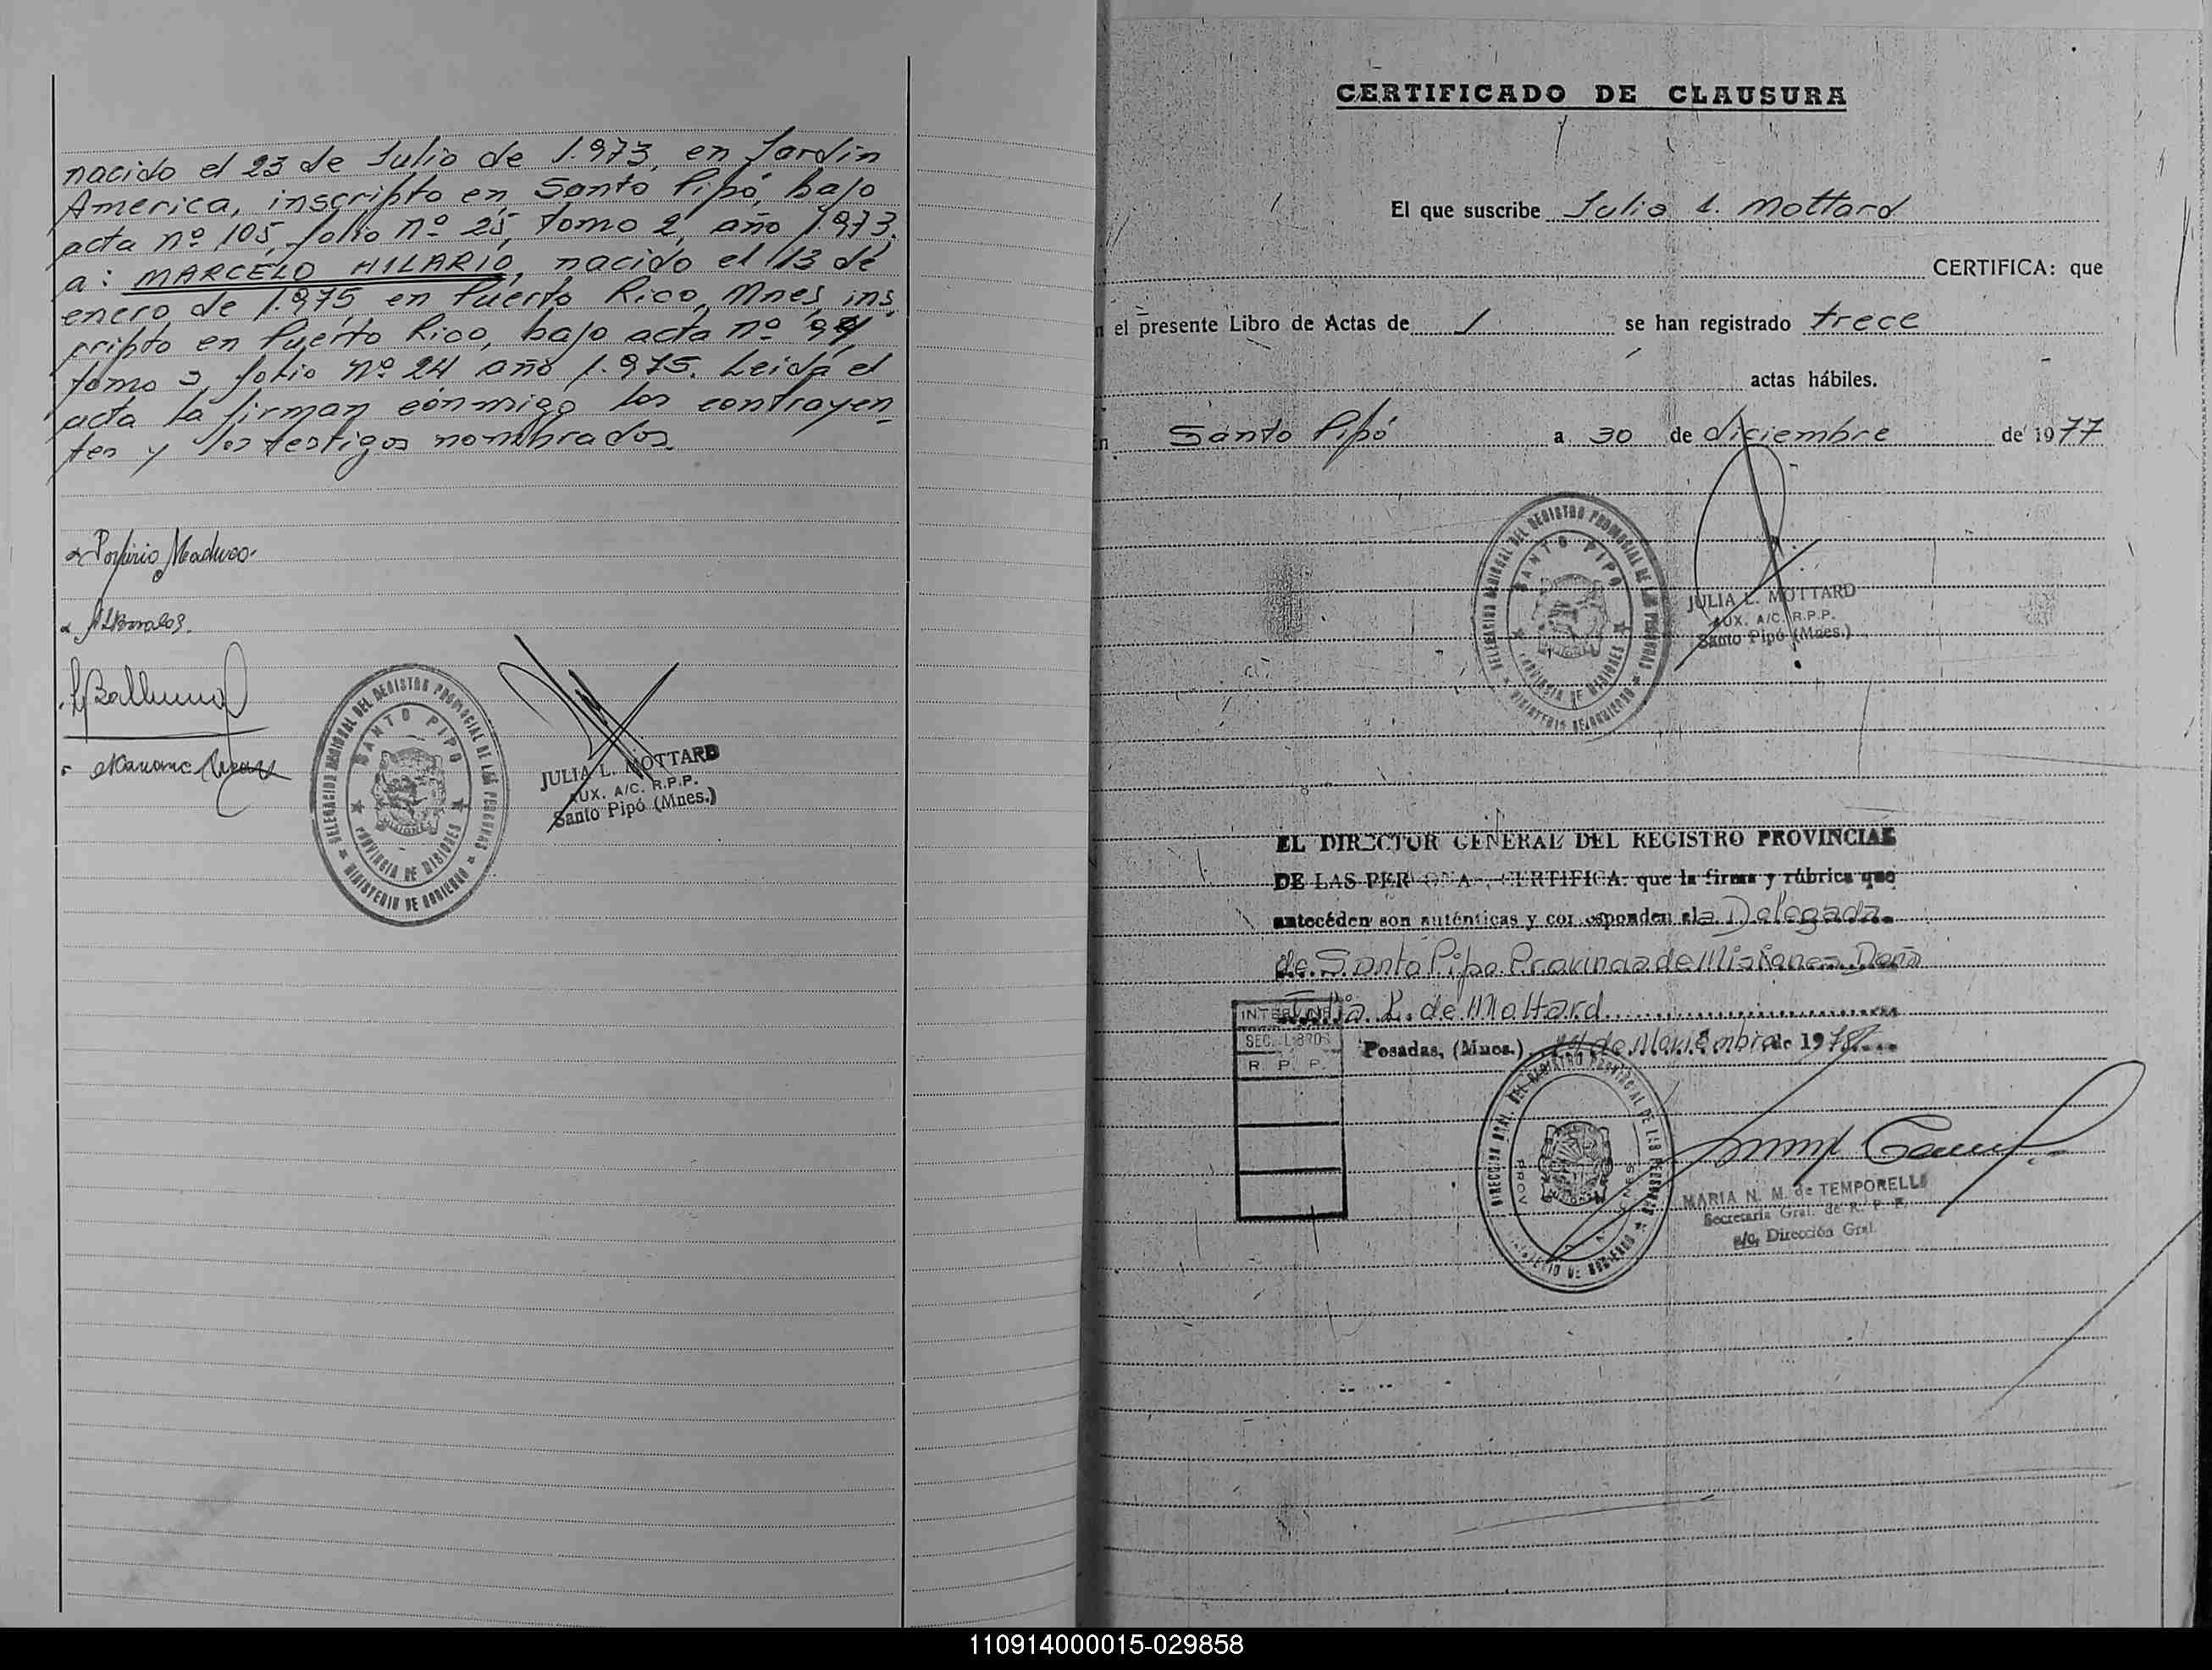 nacido el 23 de Julio de 1.973, en Jardín
America, inscripto en Santo Pipó, bajo
acta nº 105, folio nº 25, tomo 2, año 1.973.
a: MARCELO HILARIO, nacido el 13 de
enero de 1.975, en Puerto Rico, Mnes, ins
cripto en Puerto Rico, bajo acta nº
tomo 3, folio nº 24 año 1.975. Leida el
acta la firman conmigo los contrayen-
tes y los testigos nombrados.
Porfirio
DELEGACION REGIONAL DEL REGISTRO PROVINCIAL DE LAS PERSONAS
SANTO PIPO
PROVINCIA DE MISIONES
MINISTERIO DE GOBIERNO
JULIA L. MOTTARD
AUX. A/C. R.P.P.
Santo Pipó (Mnes.)
CERTIFICADO DE CLAUSURA
El que suscribe Julia L. Mottard
CERTIFICA: que
n el presente Libro de Actas de 1 se han registrado trece
actas hábiles.
n Santo Pipó a 30 de diciembre de 1977
DELEGACION REGIONAL DEL REGISTRO PROVINCIAL DE LAS PERSONAS
SANTO PIPO
PROVINCIA DE MISIONES
MINISTERIO DE GOBIERNO
JULIA L. MOTTARD
AUX. A/C. R.P.P.
Santo Pipó (Mnes.)
EL DIRECTOR GENERAL DEL REGISTRO PROVINCIAL
DE LAS PERSONAS, CERTIFICA: que la firma y rúbrica que
antecéden son auténticas y corresponden a la Delegada
de Santo Pipo Provincia de Misiones Doña
Julia L. de Mottard
INTERVINE
SEC. LIBROS
R. P. P.
Posadas, (Mnes.) de Noviembre de 1978
DIRECCION GRAL. DEL REGISTRO PROVINCIAL DE LAS PERSONAS
MINISTERIO DE GOBIERNO
MARIA N. M. de TEMPORELLI
Secretaria Gral. de R. P. P.
a/c. Dirección Gral.
110914000015-029858